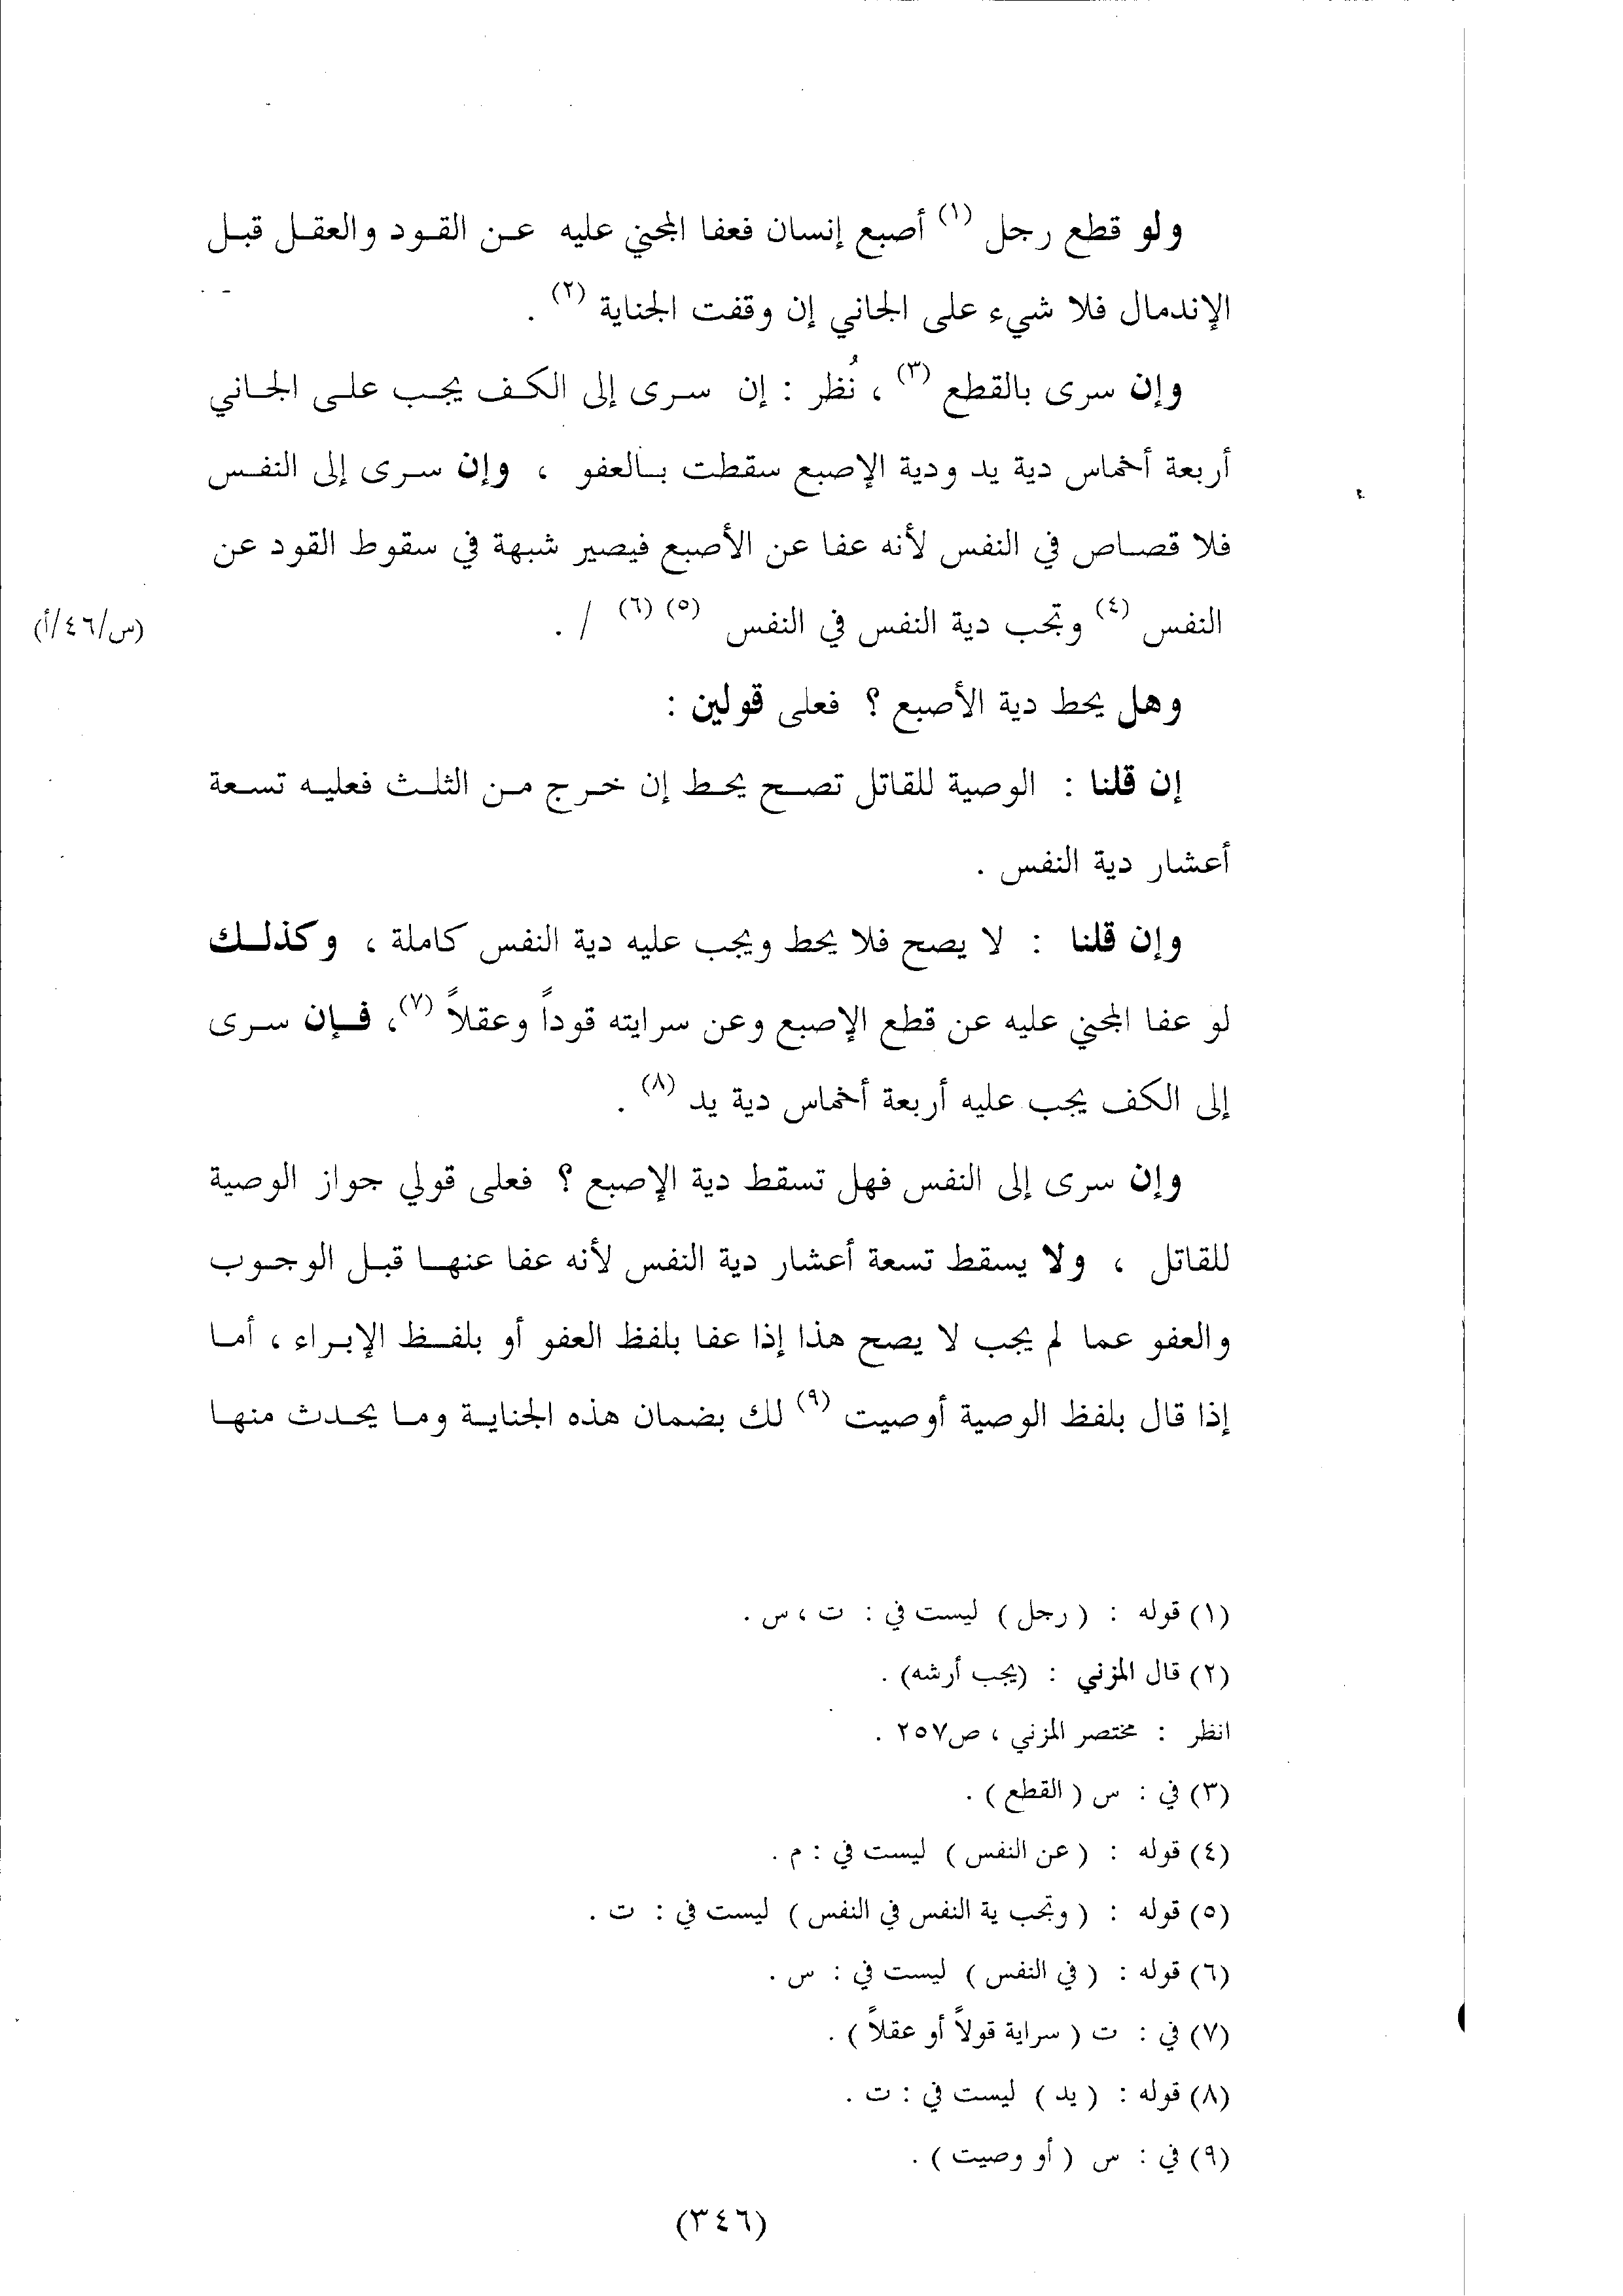 ولو قطع رجل (١) أصبع إنسان فعفا المجني عليه عن القود والعقل قبل
الإندمال فلا شيء على الجاني إن وقفت الجناية (٢) .
وإن سرى بالقطع (٣) ، نُظر : إن سرى إلى الكف يجب على الجاني
أربعة أخماس دية يد ودية الإصبع سقطت بالعفو ، وإن سرى إلى النفس
فلا قصاص في النفس لأنه عفا عن الأصبع فيصير شبهة في سقوط القود عن
النفس (٤) وتجب دية النفس في النفس (٥) (٦) / .
(س/٤٦/أ)
وهل يحط دية الأصبع ؟ فعلى قولين :
إن قلنا : الوصية للقاتل تصح يحط إن خرج من الثلث فعليه تسعة
أعشار دية النفس .
وإن قلنا : لا يصح فلا يحط ويجب عليه دية النفس كاملة ، وكذلك
لو عفا المجني عليه عن قطع الإصبع وعن سرايته قوداً وعقلاً (٧)، فإن سرى
إلى الكف يجب عليه أربعة أخماس دية يد (٨) .
وإن سرى إلى النفس فهل تسقط دية الإصبع ؟ فعلى قولي جواز الوصية
للقاتل ، ولا يسقط تسعة أعشار دية النفس لأنه عفا عنها قبل الوجوب
والعفو عما لم يجب لا يصح هذا إذا عفا بلفظ العفو أو بلفظ الإبراء ، أما
إذا قال بلفظ الوصية أوصيت (٩) لك بضمان هذه الجناية وما يحدث منها
(١) قوله : ( رجل ) ليست في : ت ، س .
(٢) قال المزني : (يجب أرشه) .
انظر : مختصر المزني ، ص٢٥٧ .
(٣) في : س ( القطع ) .
(٤) قوله : ( عن النفس ) ليست في : م .
(٥) قوله : ( وتجب ية النفس في النفس ) ليست في : ت .
(٦) قوله : ( في النفس ) ليست في : س .
(٧) في : ت ( سراية قولاً أو عقلاً ) .
(٨) قوله : ( يد ) ليست في : ت .
(٩) في : س ( أو وصيت ) .
(٣٤٦)